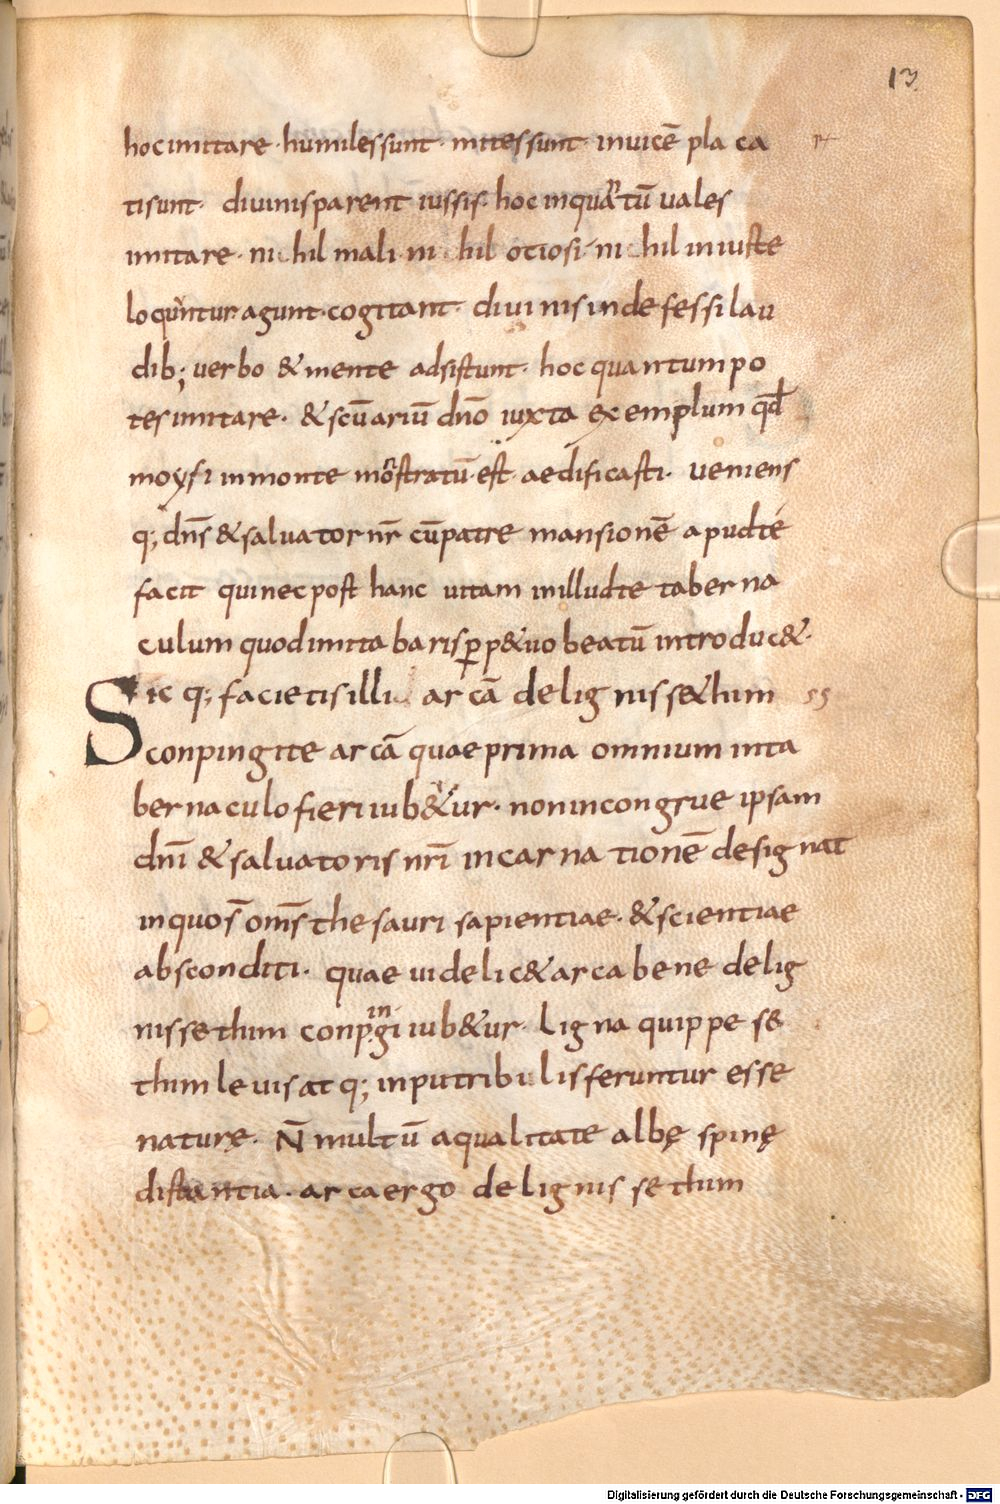 13
hoc imitare · humiles sunt · mites sunt · invicē pla ca
ti sunt · divinis parent iussis · hoc inquantū vales
imitare · ni hil mali · ni hil otiosi · ni hil iniuste
loquuntur agunt · cogitant · divinis indefessi lau
dib; verbo & mente adsistunt · hoc quantum po
tes imitare · & scuariū dño iuxta exemplum qđ
moysi in monte mostratū · est · aedificasti · veniens
q; dñs & salvator nr̄ cū patre mansionē apud te
facit qui nec post hanc vitam in illud te taberna
culum quod imitabaris ꝑp&uo beatū introduc& ·
Sic q; facietis illi arcā de lignis sethim
conpingite arcā quae prima omnium in ta
bernaculo fieri iub&ur · non incongrue ipsam
dnī & salvatoris nrī incarnationē designat
in quo s̄ om̄s thesauri sapientiae · & scientiae
absconditi · quae videlic& arca bene de lig
nis sethim conpingi iub&ur · Ligna quippe se
thim levis atq; inputribilis feruntur esse
naturę · N̄ multū a qualitate albę spinę
distantia · arca ergo de lignis sethim
Digitalisierung gefördert durch die Deutsche Forschungsgemeinschaft - DFG